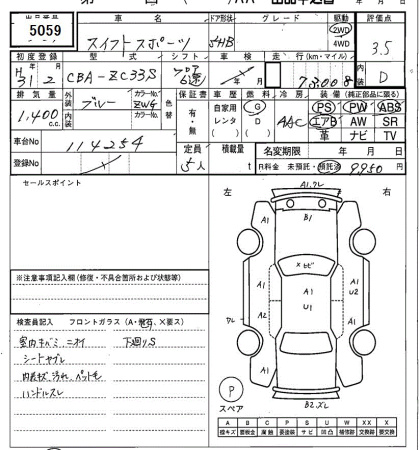 出品番号 車名 ドア形状 グレード 駆動 評価点
5059 スイフトスポーツ 5HB 2WD 4WD 3.5
初度登録 型式 シフト 車検 走行(km・マイル) 内装
H31年2月 CBA-ZC33S フロア6速 年 月 73,008 D
排気量 外装 カラーNo. 色替 保証書 車歴 燃料 冷房 装備(純正部品に限る)
1,400c.c. ブルー ZWG 有・無 自家用 レンタ G D AAC PS PW ABS
内装 カラーNo. エアB AW SR
革 ナビ TV
車台No 114254 定員 積載量 名変期限 年 月 日
登録No 5人 t R料金 未預託・預託済 9950
セールスポイント
左 右
A1,ワレ
A1 B1 A1
×ヒビ
A1 A1 A1 U2
U1
ワレ A2 A1
A1 A1
P
スペア
B2,Xレ
※注意事項記入欄(修復・不具合箇所および状態等)
検査員記入 フロントガラス(A・飛石、×要ス)
室内キバミ ニオイ 下廻りS
シートヤブレ
内装キズ 汚れ、ペット毛
ハンドルスレ
A B C P S U W X XX
線キズ 要板金 腐蝕 要塗装 サビ 凹凸 補修跡 交換跡 要交換